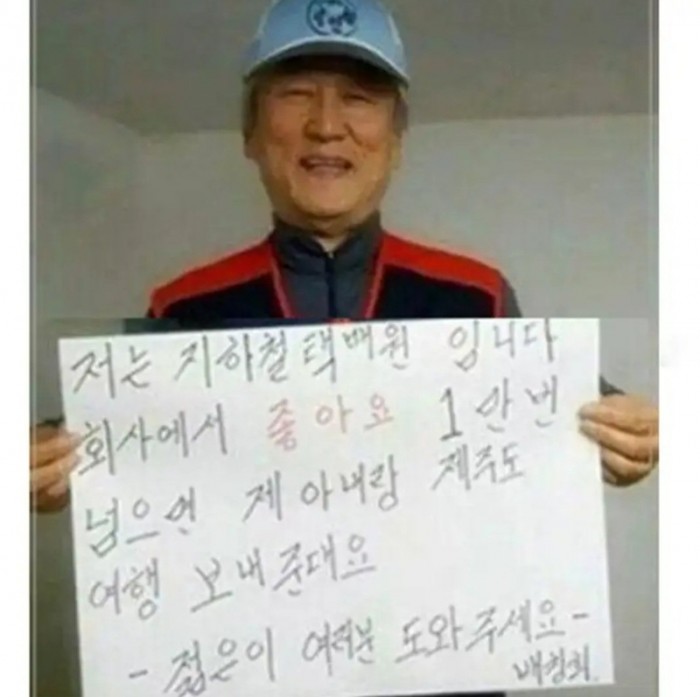 저는 지하철택배원 입니다
회사에서 좋아요 1만번
넘으면 제 아내랑 제주도
여행 보내준대요
- 젊은이 여러분 도와주세요 -